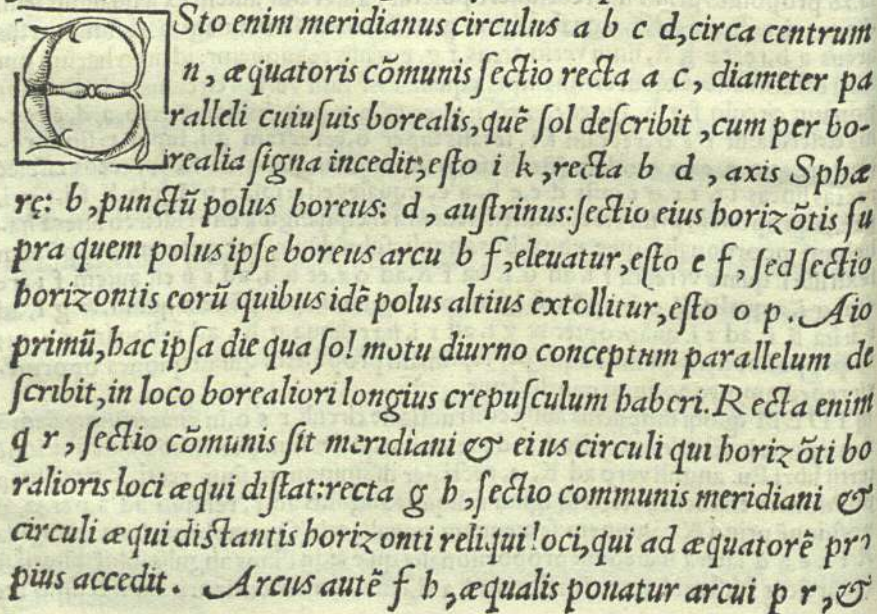 ESto enim meridianus circulus a b c d, circa centrum
n, æquatoris cõmunis ſectio recta a c, diameter pa
ralleli cuiuſuis borealis, quẽ ſol deſcribit, cum per bo-
realia ſigna incedit; eſto i k, recta b d, axis Sphæ
rę: b, punctũ polus boreus: d, auſtrinus: ſectio eius horizõtis ſu
pra quem polus ipſe boreus arcu b f, eleuatur, eſto e f, ſed ſectio
horizontis eorũ quibus idẽ polus altius extollitur, eſto o p. Aio
primũ, hac ipſa die qua ſol motu diurno conceptum parallelum de
ſcribit, in loco borealiori longius crepuſculum haberi. Recta enim
q r, ſectio cõmunis ſit meridiani & eius circuli qui horizõti bo
ralioris loci æqui diſtat: recta g h, ſectio communis meridiani &
circuli æqui diſtantis horizonti reliqui loci, qui ad æquatorẽ pro
pius accedit. Arcus autẽ f h, æqualis ponatur arcui p r, &